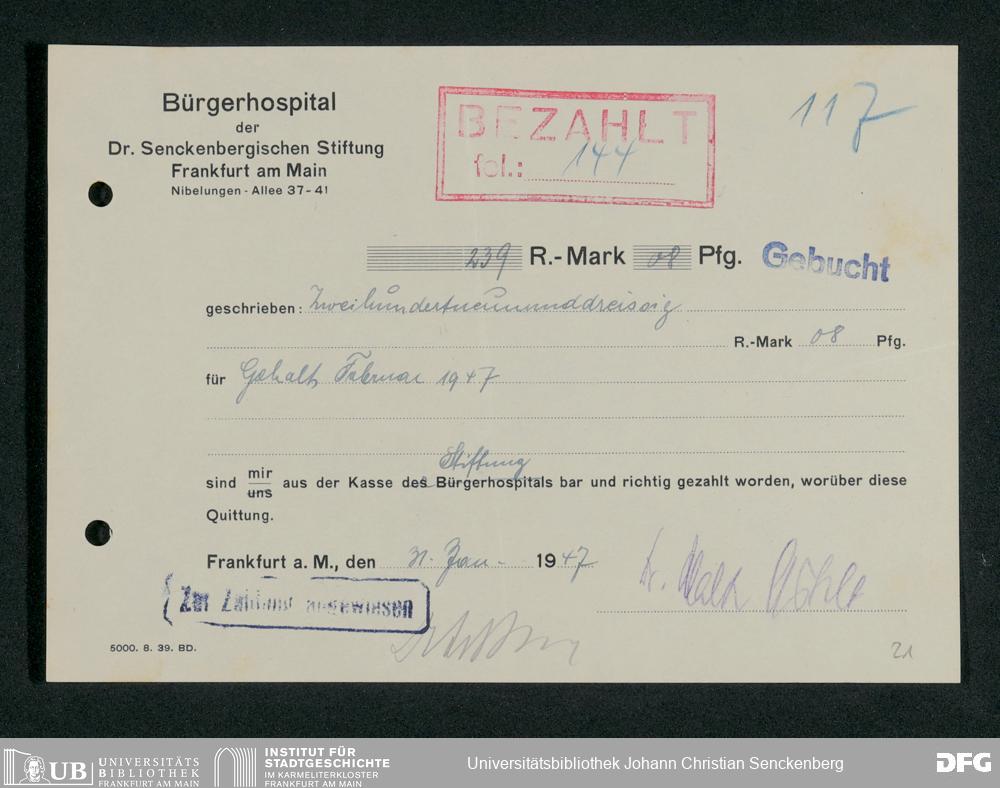 Bürgerhospital
der
Dr. Senckenbergischen Stiftung
Frankfurt am Main
Nibelungen-Allee 37-41
BEZAHLT
fol.: 144
117
239 R.-Mark 08 Pfg.
Gebucht
geschrieben: Zweihundertneununddreissig
R.-Mark 08 Pfg.
für Gehalt Februar 1947
Stiftung
sind mir/uns aus der Kasse des Bürgerhospitals bar und richtig gezahlt worden, worüber diese
Quittung.
Frankfurt a. M., den 31. Jan. 1947
Zur Zahlung angewiesen
Dr.
5000. 8. 39. BD.
21
UB UNIVERSITÄTS
BIBLIOTHEK
FRANKFURT AM MAIN
INSTITUT FÜR
STADTGESCHICHTE
IM KARMELITERKLOSTER
FRANKFURT AM MAIN
Universitätsbibliothek Johann Christian Senckenberg
DFG